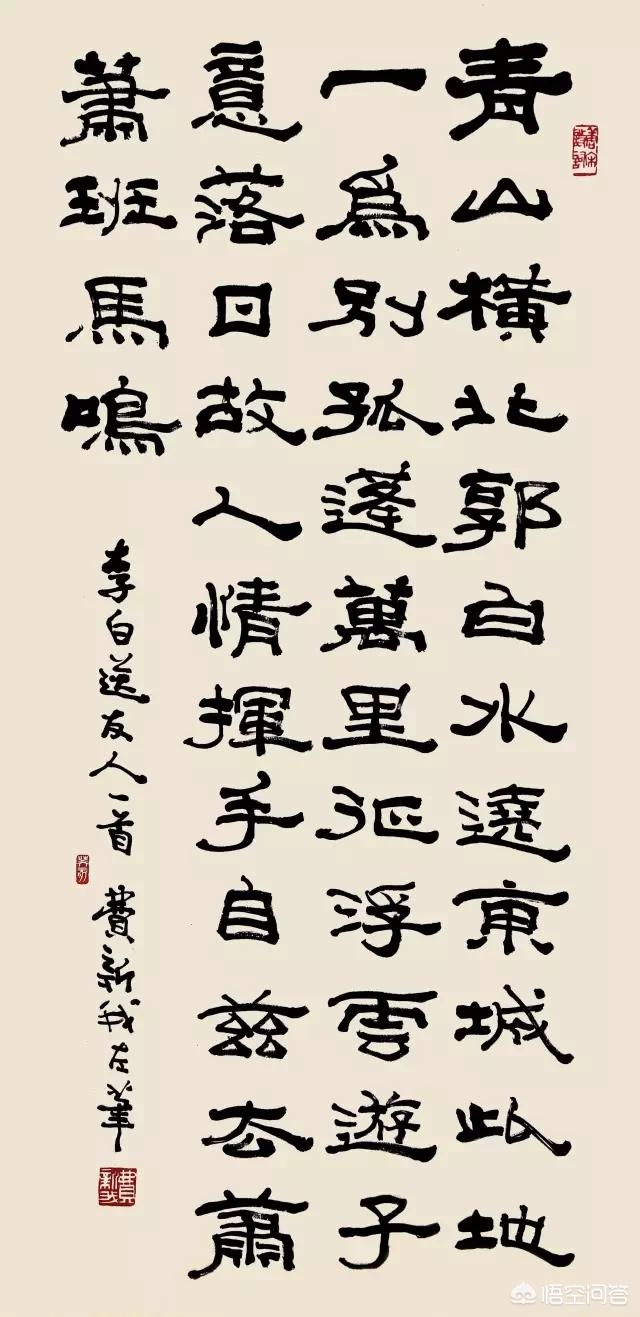 青山橫北郭白水遶東城此地
一爲別孤蓬萬里征浮雲遊子
意落日故人情揮手自茲去蕭
蕭班馬鳴
李白送友人一首 費新我左筆
費新我
悟空问答